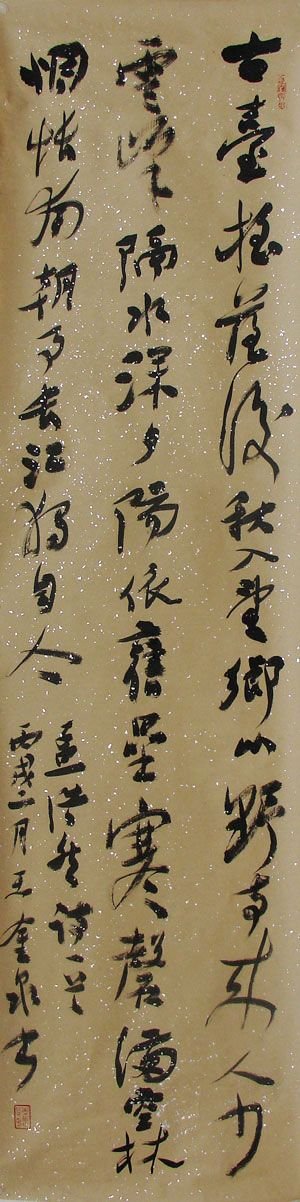 古臺摇落後秋入望鄉心野寺来人少
雲峰隔水深夕陽依舊壘寒磬滿空林
惆悵南朝事長江獨自今
孟浩然詩一首
丙戌二月王奎泉书